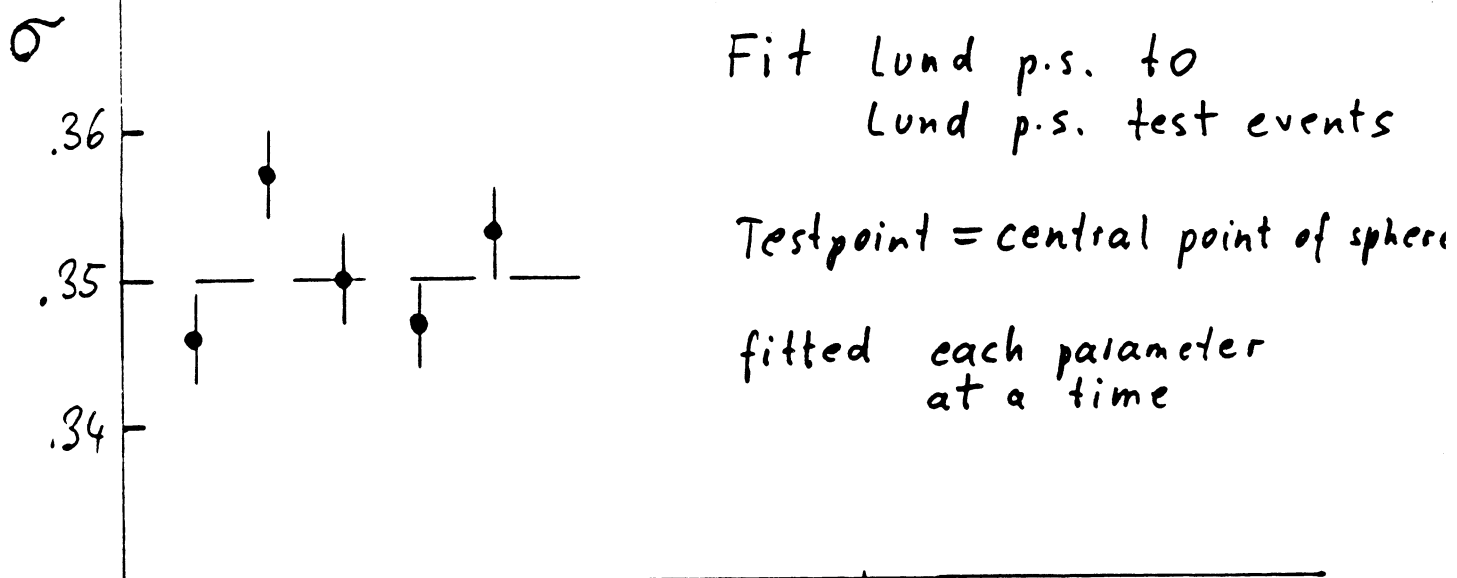 σ
.36
.35
.34
Fit Lund p.s. to
Lund p.s. test events
Testpoint = central point of sphere
fitted each parameter
at a time